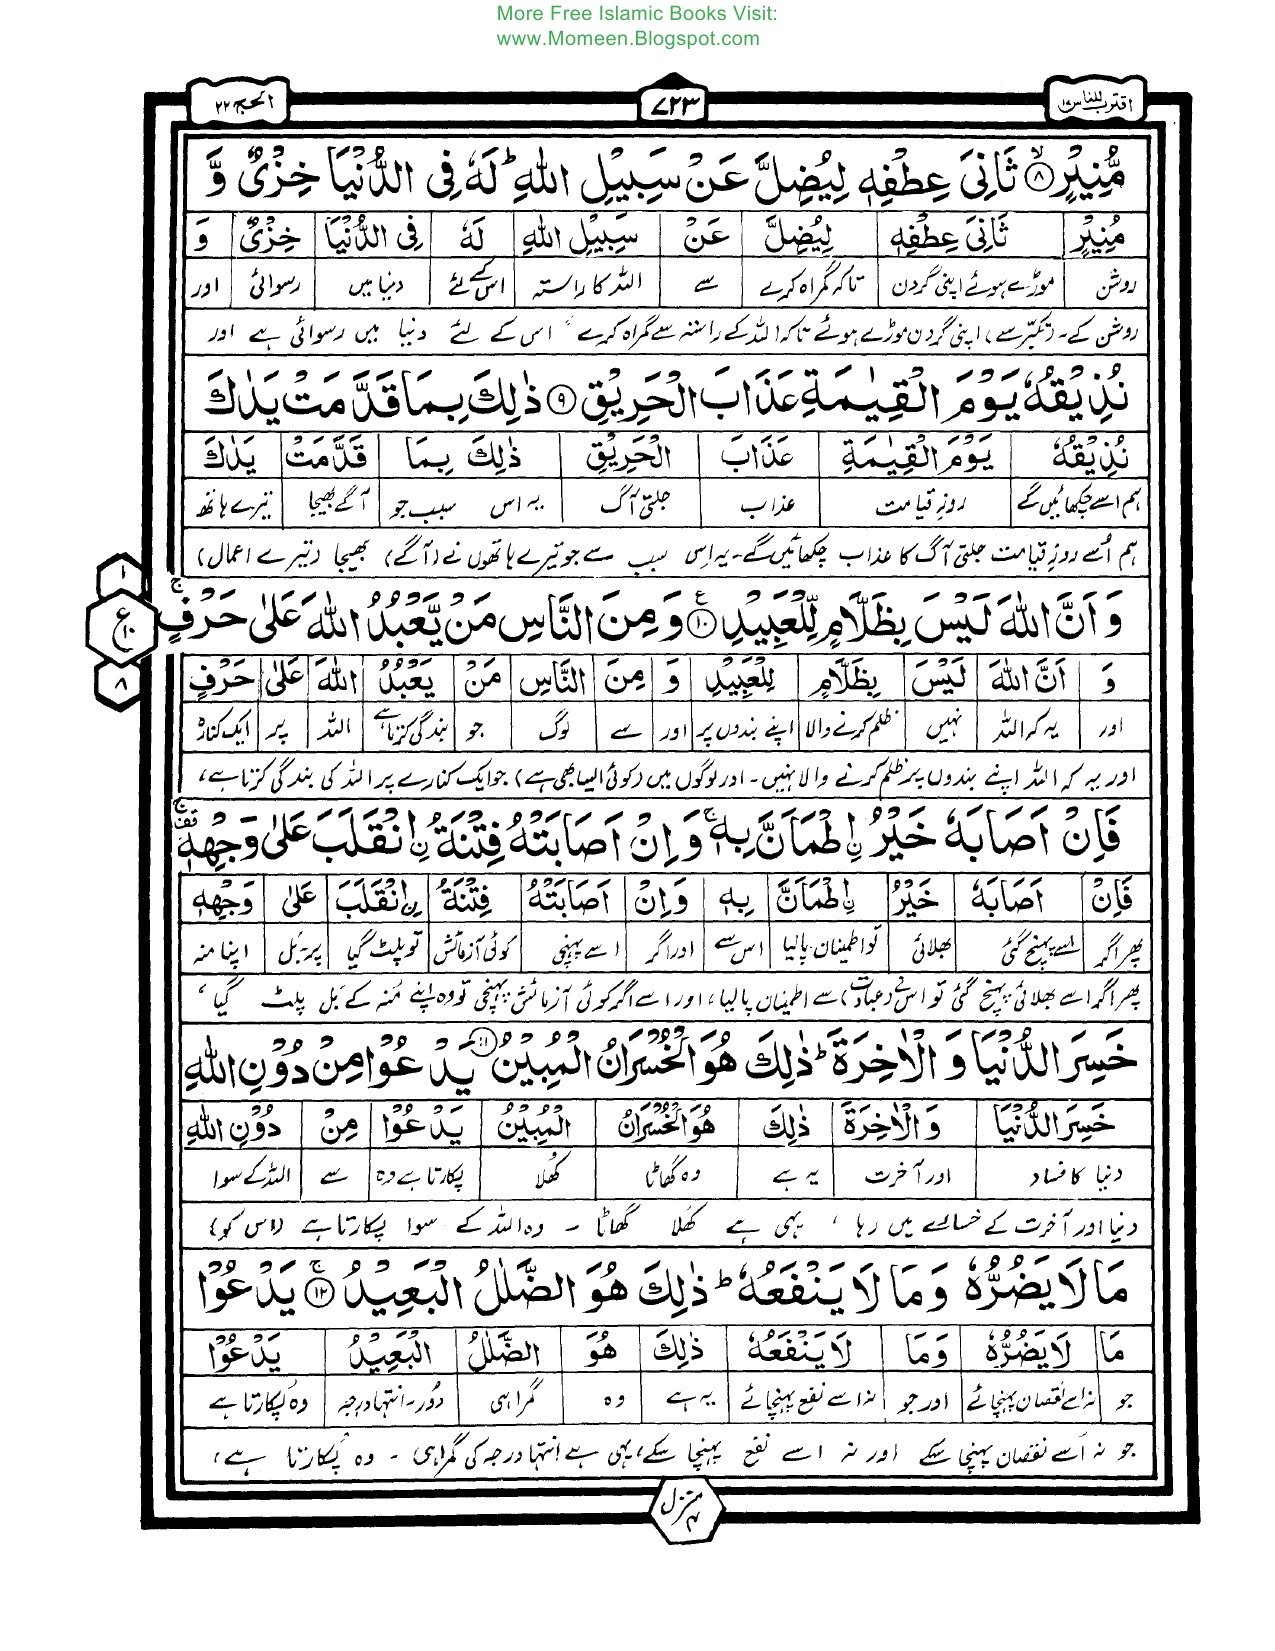 More Free Islamic Books Visit:
www.Momeen.Blogspot.com
اقترب للناس ۱۷
۷۲۳
الحج ۲۲
مُّنِيْرٍ ۙ۸ ثَانِيَ عِطْفِهٖ لِيُضِلَّ عَنْ سَبِيْلِ اللهِ ؕ لَهٗ فِي الدُّنْيَا خِزْيٌ وَّ
مُنِيْرٍ ثَانِيَ عِطْفِهٖ لِيُضِلَّ عَنْ سَبِيْلِ اللهِ لَهٗ فِي الدُّنْيَا خِزْيٌ وَ
روشن موڑے ہوئے اپنی گردن تاکہ گمراہ کرے سے اللہ کا راستہ اس کے لئے دنیا میں رسوائی اور
روشن کے۔ (تکبر سے) اپنی گردن موڑے ہوئے تاکہ اللہ کے راستہ سے گمراہ کرے، اس کے لئے دنیا میں رسوائی ہے اور
نُذِيْقُهٗ يَوْمَ الْقِيٰمَةِ عَذَابَ الْحَرِيْقِ ۹ ذٰلِكَ بِمَا قَدَّمَتْ يَدٰكَ
نُذِيْقُهٗ يَوْمَ الْقِيٰمَةِ عَذَابَ الْحَرِيْقِ ذٰلِكَ بِمَا قَدَّمَتْ يَدٰكَ
ہم اسے چکھائیں گے روز قیامت عذاب جلتی آگ یہ اس سبب جو آگے بھیجا تیرے ہاتھ
ہم اُسے روزِ قیامت جلتی آگ کا عذاب چکھائیں گے۔ یہ اس سبب سے جو تیرے ہاتھوں نے (آگے) بھیجا (تیرے اعمال)
وَ اَنَّ اللهَ لَيْسَ بِظَلَّامٍ لِّلْعَبِيْدِ ۱۰ۧ وَ مِنَ النَّاسِ مَنْ يَّعْبُدُ اللهَ عَلٰى حَرْفٍ ۚ
۱
ع ۱۰
۸
وَ اَنَّ اللهَ لَيْسَ بِظَلَّامٍ لِلْعَبِيْدِ وَ مِنَ النَّاسِ مَنْ يَعْبُدُ اللهَ عَلٰى حَرْفٍ
اور یہ کہ اللہ نہیں ظلم کرنے والا اپنے بندوں پر اور سے لوگ جو بندگی کرتا ہے اللہ پر ایک کنارہ
اور یہ کہ اللہ اپنے بندوں پر ظلم کرنے والا نہیں۔ اور لوگوں میں (کوئی ایسا بھی ہے) جو ایک کنارے پر اللہ کی بندگی کرتا ہے،
فَاِنْ اَصَابَهٗ خَيْرُ ۨاطْمَاَنَّ بِهٖ ۚ وَ اِنْ اَصَابَتْهُ فِتْنَةُ ۨانْقَلَبَ عَلٰى وَجْهِهٖ ۚ
فَاِنْ اَصَابَهٗ خَيْرُ ۨاطْمَاَنَّ بِهٖ وَ اِنْ اَصَابَتْهُ فِتْنَةُ ۨانْقَلَبَ عَلٰى وَجْهِهٖ
پھر اگر اسے پہنچ گئی بھلائی تو اطمینان پالیا اس سے اور اگر اسے پہنچی کوئی آزمائش تو پلٹ گیا پر۔ بَل اپنا منہ
پھر اگر اسے بھلائی پہنچ گئی تو اس (عبادت) سے اطمینان پالیا، اور اسے اگر کوئی آزمائش پہنچی تو وہ اپنے منہ کے بَل پلٹ گیا،
خَسِرَ الدُّنْيَا وَ الْاٰخِرَةَ ؕ ذٰلِكَ هُوَ الْخُسْرَانُ الْمُبِيْنُ ۱۱ يَدْعُوْا مِنْ دُوْنِ اللهِ
خَسِرَ الدُّنْيَا وَ الْاٰخِرَةَ ذٰلِكَ هُوَ الْخُسْرَانُ الْمُبِيْنُ يَدْعُوْا مِنْ دُوْنِ اللهِ
دنیا کا فساد اور آخرت یہ ہے وہ گھاٹا کھُلا پکارتا ہے وہ سے اللہ کے سوا
دنیا اور آخرت کے خسارے میں رہا، یہی ہے کھُلا گھاٹا ۔ وہ اللہ کے سوا پکارتا ہے (اس کو)
مَا لَا يَضُرُّهٗ وَ مَا لَا يَنْفَعُهٗ ؕ ذٰلِكَ هُوَ الضَّلٰلُ الْبَعِيْدُ ۚ۱۲ يَدْعُوْا
مَا لَا يَضُرُّهٗ وَمَا لَا يَنْفَعُهٗ ذٰلِكَ هُوَ الضَّلٰلُ الْبَعِيْدُ يَدْعُوْا
جو نہ اسے نقصان پہنچائے اور جو نہ اسے نفع پہنچائے یہ ہے وہ گمراہی دُور۔ انتہا درجہ وہ پکارتا ہے
جو نہ اُسے نقصان پہنچا سکے اور نہ اسے نفع پہنچا سکے، یہی ہے انتہا درجہ کی گمراہی ۔ وہ پکارتا ہے،
منزل ۴